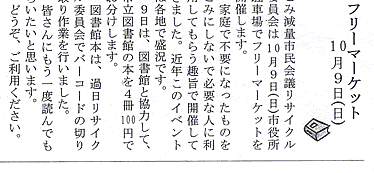 フリーマーケット
10月9日(日)
み減量市民会議リサイクル
員会は10月9日(日)市役所
車場でフリーマーケットを
催します。
家庭で不要になったものを
みにしないで必要な人に利
用してもらう趣旨で開催して
ました。近年このイベント
各地で盛況です。
9日は、図書館と協力して、
立図書館の本を4冊100円で
分けします。
図書館本は、過日リサイク
委員会でバーコードの切り
り作業を行いました。
皆さんにもう一度読んでも
いたいと思います。
どうぞ、ご利用ください。